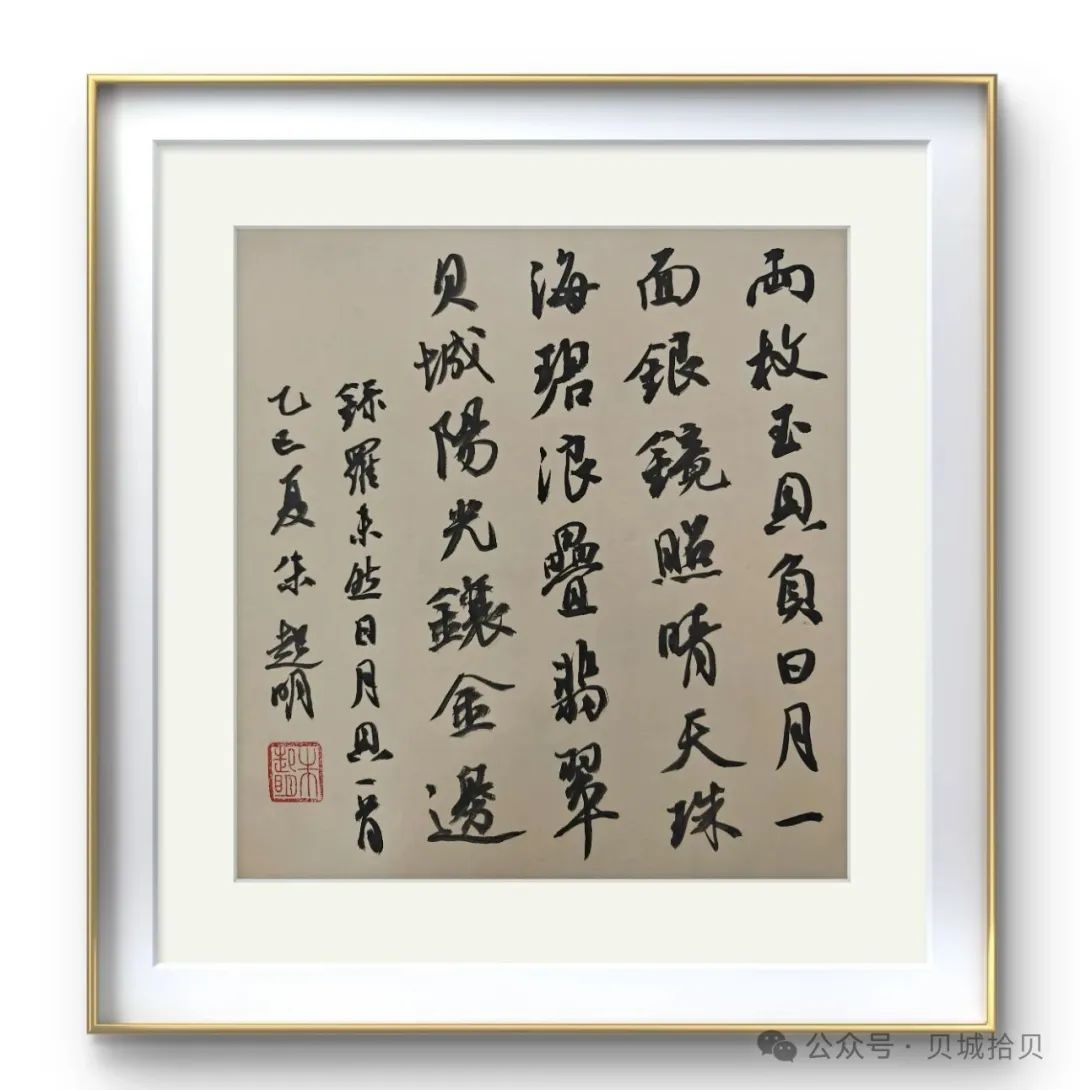 兩枚玉貝負日月一
面銀鏡照晴天珠
海碧浪疊翡翠
貝城陽光鑲金邊
錄羅未然日月貝一首
乙巳夏朱超明
朱超明
公众号 · 贝城拾贝